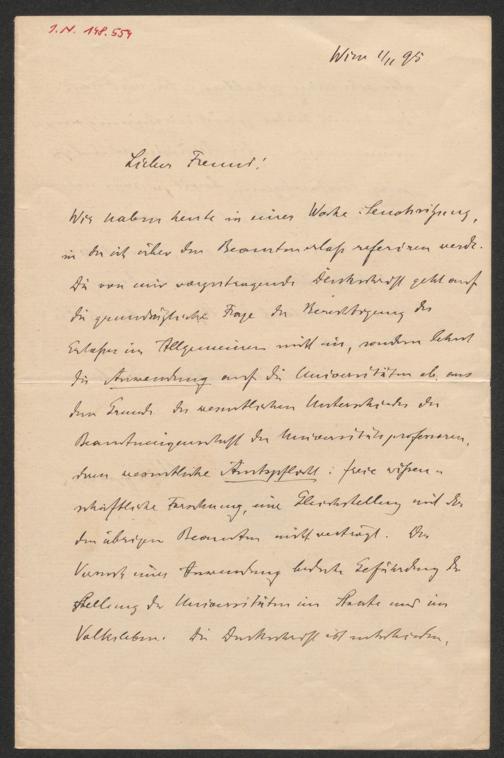 I.N. 148.554
Wien 1/11 95
Lieber Freund!
Wir haben heute in einer Woche Senatssitzung,
in der ich über den Beamtenerlaß referiren werde.
Die von mir vorzutragende Denkschrift geht auf
die grundsätzliche Frage der Berechtigung des
Erlasses im Allgemeinen nicht ein, sondern lehnt
die Anwendung auf die Universitäten ab, aus
dem Grunde des wesentlichen Unterschiedes der
Beamteneigenschaft der Universitätsprofessoren,
deren wesentliche Amtspflicht: freie wissen-
schaftliche Forschung, eine Gleichstellung mit der
der übrigen Beamten nicht verträgt. Der
Versuch einer Anwendung bedeute Gefährdung der
Stellung der Universitäten im Staate und im
Volksleben. Die Denkschrift ist entschieden,